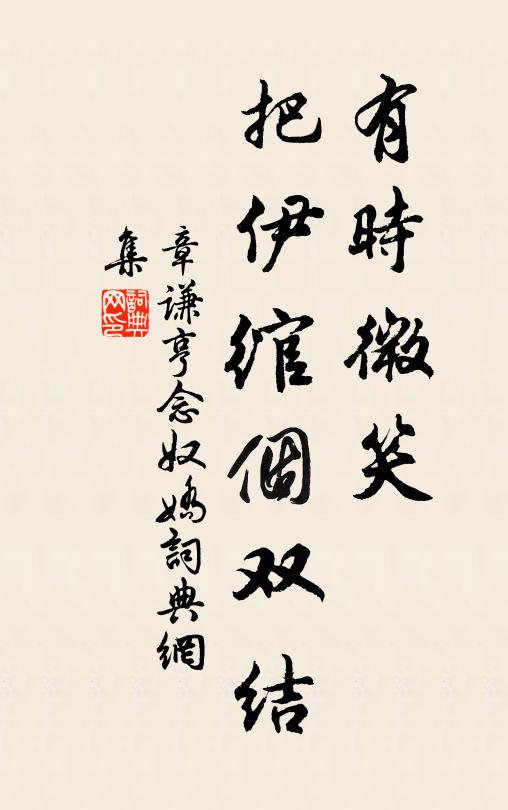 有時微笑
把伊綰個双结
章謙亨念奴嬌詞典網
集
詞典网印